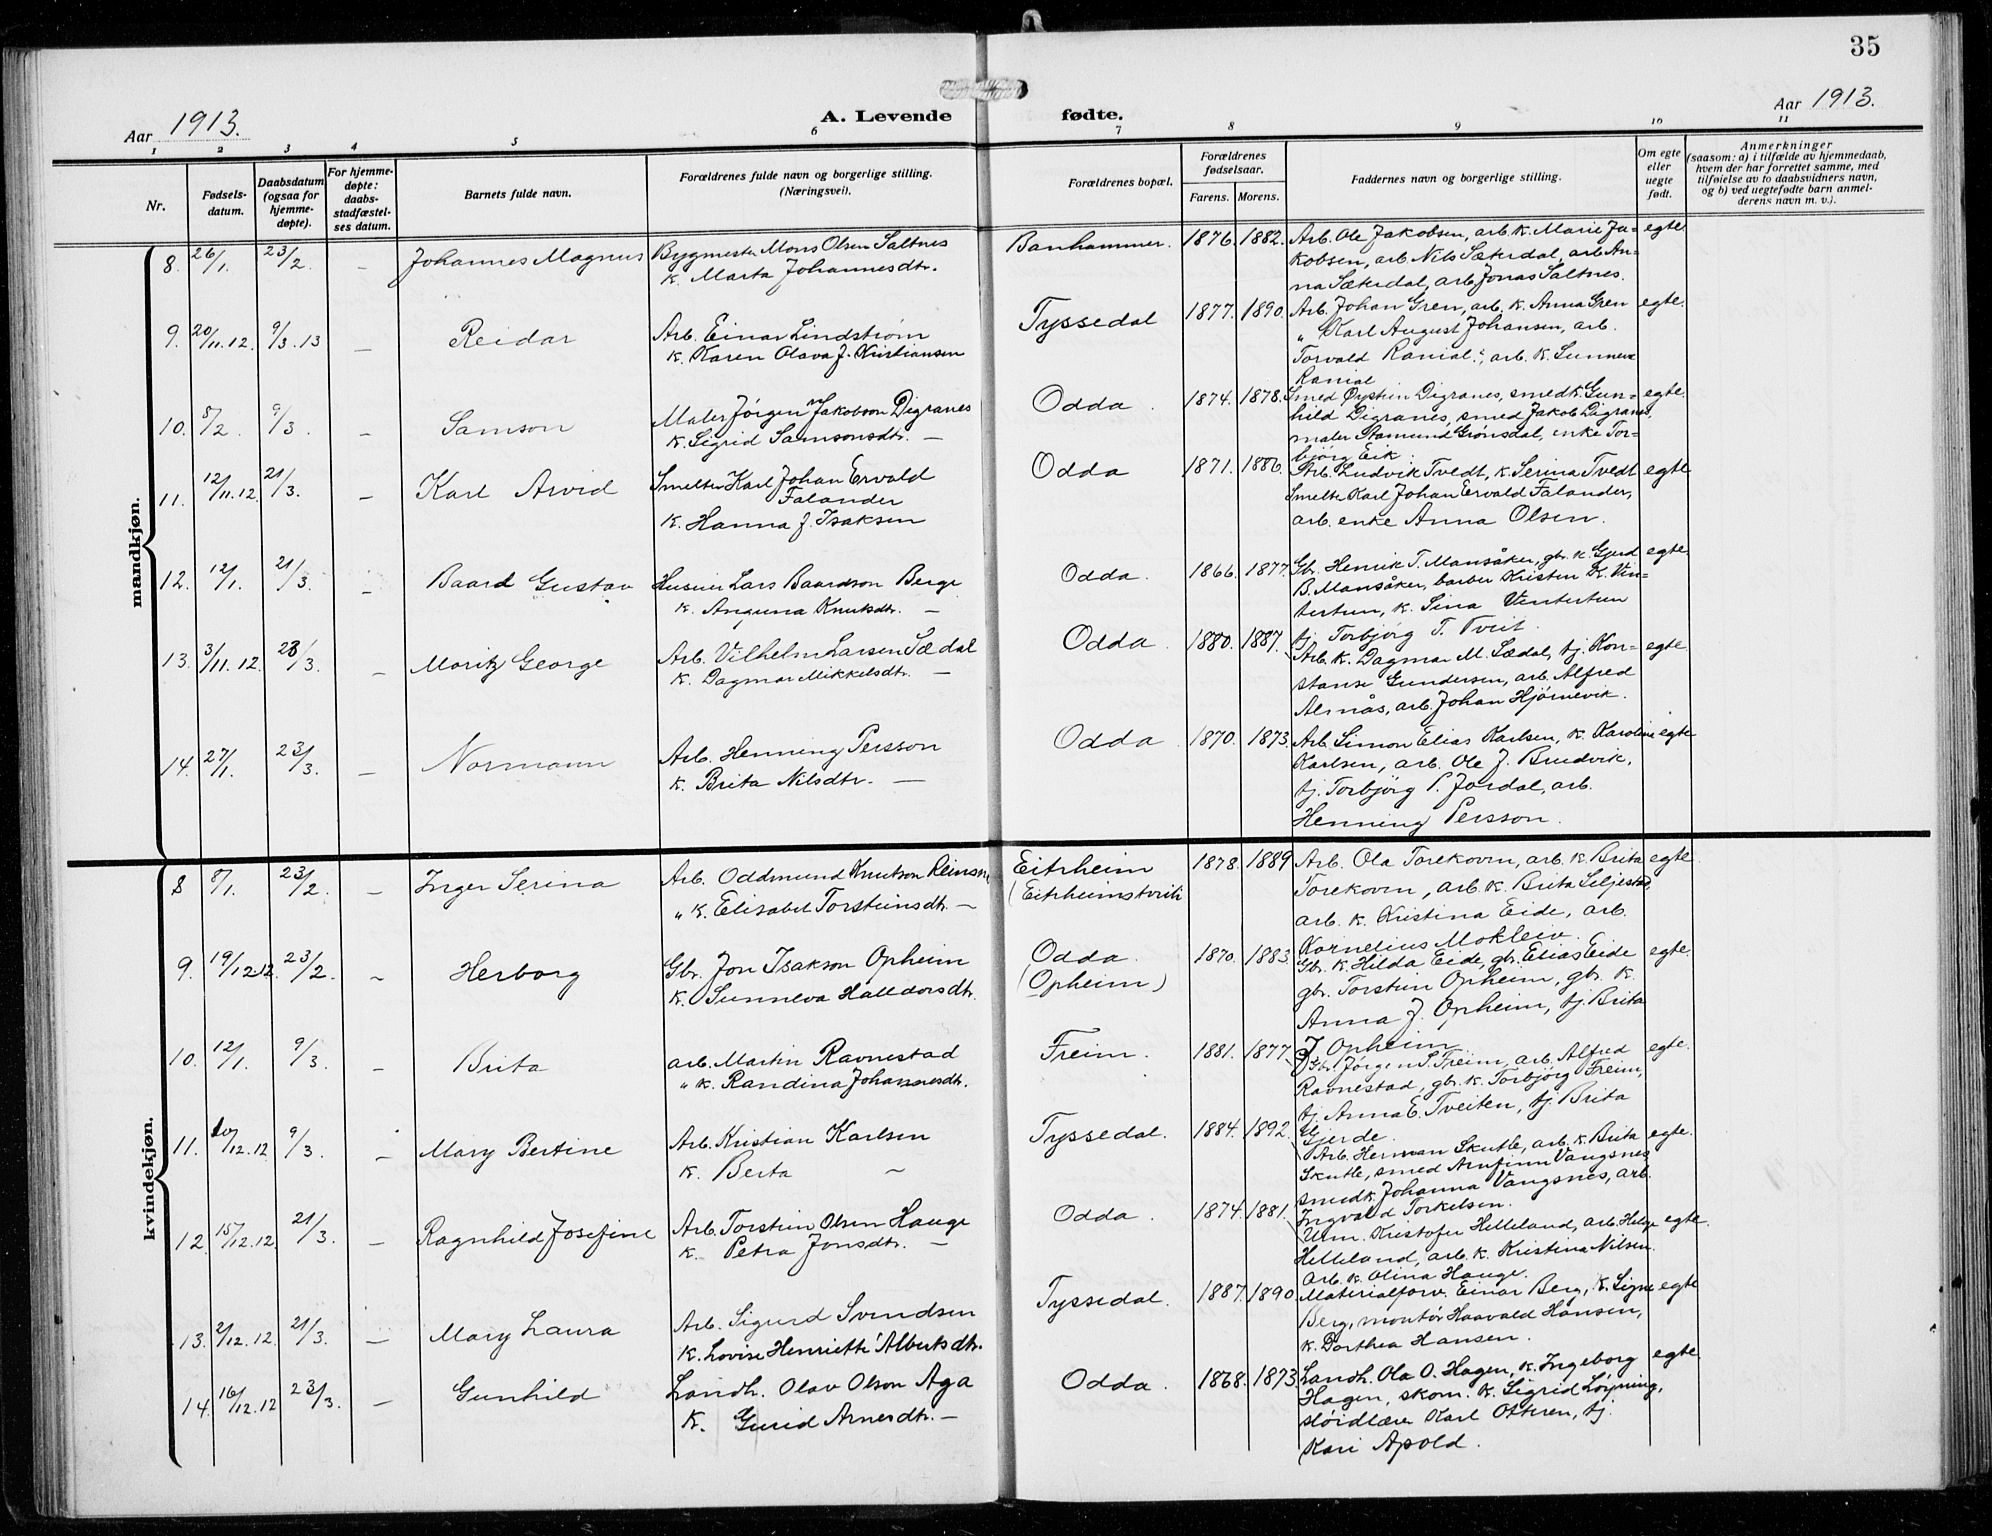 35
Aar 1913.
A. Levende fødte.
Aar 1913.
1 2 3 4 5 6 7 8 9 10 11
Nr.
Fødselsdatum.
Daabsdatum (ogsaa for hjemmedøpte).
For hjemmedøpte: daabsstadfæstelses datum.
Barnets fulde navn.
Forældrenes fulde navn og borgerlige stilling. (Næringsvei).
Forældrenes bopæl.
Forældrenes fødselsaar.
Farens. Morens.
Faddernes navn og borgerlige stilling.
Om egte eller uegte født.
Anmerkninger
(saasom: a) i tilfælde av hjemmedaab, hvem der har forrettet samme, med tilføielse av to daabsvidners navn, og b) ved uegtefødte barn anmelderens navn m. v.).
mandkjøn.
8. 26/1. 23/2. – Johannes Magnus
Bygmester Mons Olsen Saltnes
k. Marta Johannesdtr.
Banhammer. 1876. 1882.
Arb. Ole Jakobsen, arb. k. Marie Ja=
kobsen, arb. Nils Sæterdal, arb. An=
na Sæterdal, arb. Jonas Saltnes.
egte
9. 20/11.12. 9/3.13 – Reidar
Arb. Einar Lindstrøm
k. Karen Olava J. Kristiansen
Tyssedal 1877. 1890.
Arb. Johan Gren, arb. k. Anna Gren
" Karl August Johansen, arb.
Torvald Ranial, arb. k. Sunneva
Ranial
egte.
10. 8/2. 9/3. – Samson
Maler Jørgen Jakobson Digranes
k. Sigrid Samsonsdtr. –
Odda. 1874. 1878.
Smed Øystein Digranes, smedk. Gun=
hild Digranes, smed Jakob Digranes,
maler Aamund Grønsdal, enke Tor=
bjørg Eik.
egte.
11. 12/11.12. 21/3. – Karl Arvid
Smelter Karl Johan Ervald
Falander
k. Hanna J. Isaksen
Odda 1871. 1886.
Arb. Ludvik Tvedt, k. Serina Tvedt
Smelter Karl Johan Ervald Falander,
arb. enke Anna Olsen.
egte
12. 12/1. 21/3. – Baard Gustav
Huseier Lars Baardson Berge
k. Anguna Knutsdtr. –
Odda. 1866. 1877.
Gbr. Henrik T. Mansåker, gbr. k. Gjerd
B. Mansåker, barber Kristen K. Vin=
tertun, k. Sina Vintertun
tj. Torbjørg T. Tveit.
egte
13. 3/11.12. 23/3. – Moritz George
Arb. Vilhelm Larsen Sædal
k. Dagmar Mikkelsdtr. –
Odda 1880. 1887.
Arb. k. Dagmar M. Sædal, tj. Kon=
stanse Gundersen, arb. Alfred
Alnås, arb. Johan Hjørnevik.
egte
14. 27/1. 23/3. – Normann
Arb. Henning Persson
k. Brita Nilsdtr. –
Odda. 1870. 1873.
Arb. Simon Elias Karlsen, k. Karoline
Karlsen, arb. Ole J. Bredvik,
tj. Torbjørg P. Jordal, arb.
Henning Persson.
egte
kvindekjøn.
8 8/1. 23/2. – Inger Serina
Arb. Oddmund Knutson Reinsnes
" k. Elisabet Torsteinsdtr. –
Eitrheim
(Eitrheimstveit)
1878. 1889
Arb. Ola Torekoven, arb. k. Brita
Torekoven, arb. k. Brita Liljestad,
arb. k. Kristina Eide, arb.
Kornelius Mokleiv.
egte.
9. 19/12.12. 23/2. – Herborg
Gbr. Jon Isakson Opheim
k. Sunneva Halldorsdtr.
Odda.
(Opheim)
1870. 1883
Gbr. k. Hilda Eide, gbr. Elias Eide
gbr. Torstein Opheim, gbr. k.
Anna J. Opheim, tj. Brita
J. Opheim
egte.
10. 12/1. 9/3. – Brita
arb. Martin Ravnestad
" k. Randina Johannesdtr.
Freim. 1881. 1877.
Gbr. Jørgen S. Freim, arb. Alfred
Ravnestad, gbr. k. Torbjørg Freim,
tj. Anna E. Tveiten, tj. Brita
Gjerde.
egte.
11. 20/12.12 9/3. – Mary Bertine
Arb. Kristian Karlsen
k. Berta –
Tyssedal. 1884. 1892.
Arb. Herman Skutle, arb. k. Brita
Skutle, smed Arnfinn Vangsnes
smedk. Johanna Vangsnes, arb.
Ingvald Torkelsen.
egte.
12. 15/12.12. 21/3. – Ragnhild Josefine
Arb. Torstein Olsen Hauge
k. Petra Jonsdtr. –
Odda. 1874. 1881.
Urm. Kristofer Helleland, arb. Helge
Helleland, arb. k. Kristina Nilsen.
arb. k. Olina Hauge.
egte.
13. 2/12.12. 21/3. – Mary Laura
Arb. Sigurd Svendsen
k. Lovise Henriette Albertsdtr.
Tyssedal. 1887. 1890
Materialforv. Einar Berg, k. Signe
Berg, montør Haavald Hansen,
k. Dorthea Hansen.
egte
14. 16/12.12 23/3. – Gunhild
Landh. Olav Olson Aga
k. Gurid Arnesdtr. –
Odda. 1868. 1873
Landh. Ola O. Hagen, k. Ingeborg
Hagen, skom. k. Sigrid Løyning,
sløidlærer Karl Otteren, tj.
Kari Apold.
egte.